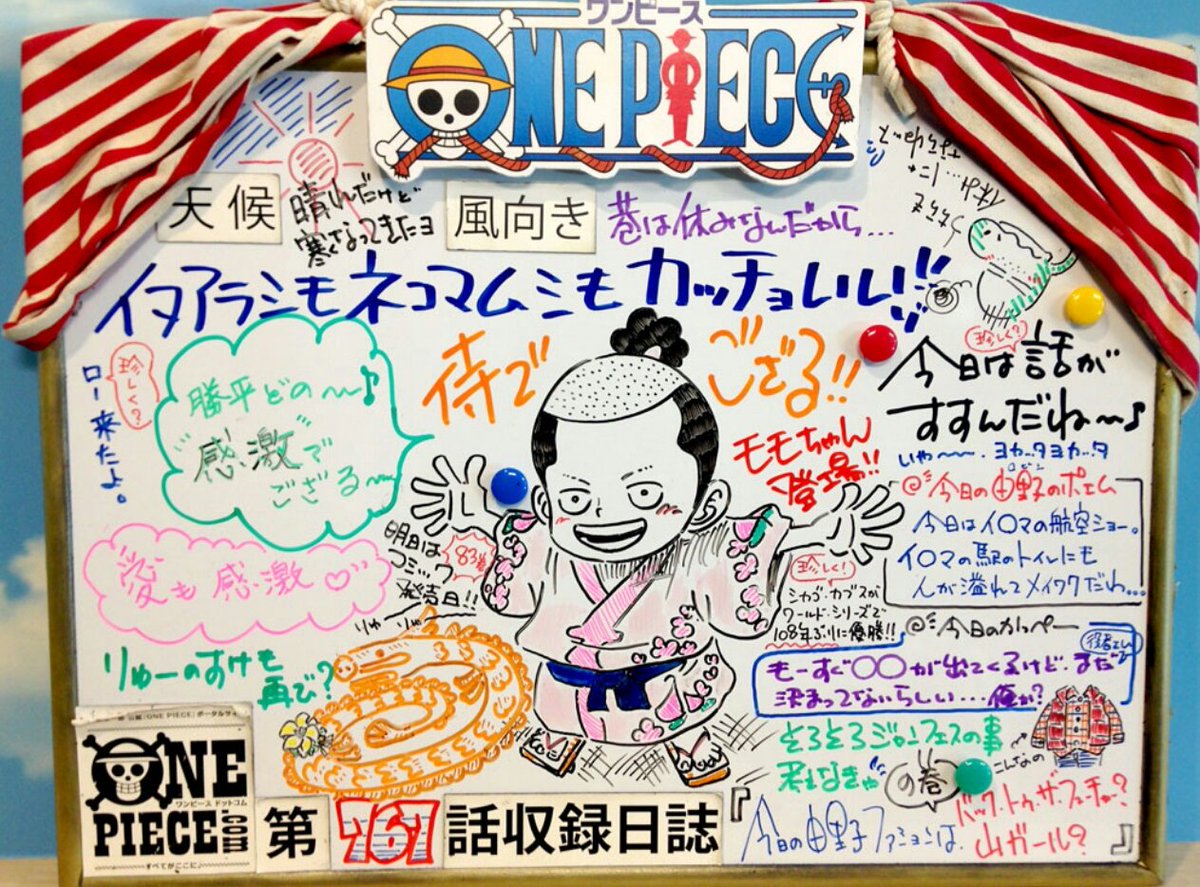 ワンピース
ONE PIECE
天候
晴れんだけど
寒くなってきたヨ
風向き
巷は休みなんだから...
イヌアラシもネコマムシもカッチョいい!!
珍しく?
ロー来たよ。
勝平どの～♪
感激で
ござる～
侍で
ござる!!
モモちゃん
登場!!
珍しく?
今日は話が
すすんだね～♪
いや～～.ヨカッタヨカッタ
@今日の由里子のポエム
今日はイ〇マの航空ショー。
イ〇マの駅のトイレにも
人が溢れてメイワクだわ...
愛も感激♡
明日は
コミック
83巻
発売日!!
珍しく!
シカゴ・カブスが
ワールド・シリーズで
108年ぶりに優勝!!
@今日のかっぺー
もーすぐ〇〇が出てくるけど.まだ
決まってないらしい...俺か?
りゅーのすけも
再で?
りゅーりゅー
そろそろジャンフェスの事
考えなきゃ
の巻
こんなの
ONE
ワンピース ドットコム
PIECE.COM
すべてがここに♪
第767話収録日誌
『今日の由里子ファションは、
バック・トゥ・ザ・フューチャー?
山ガール?』